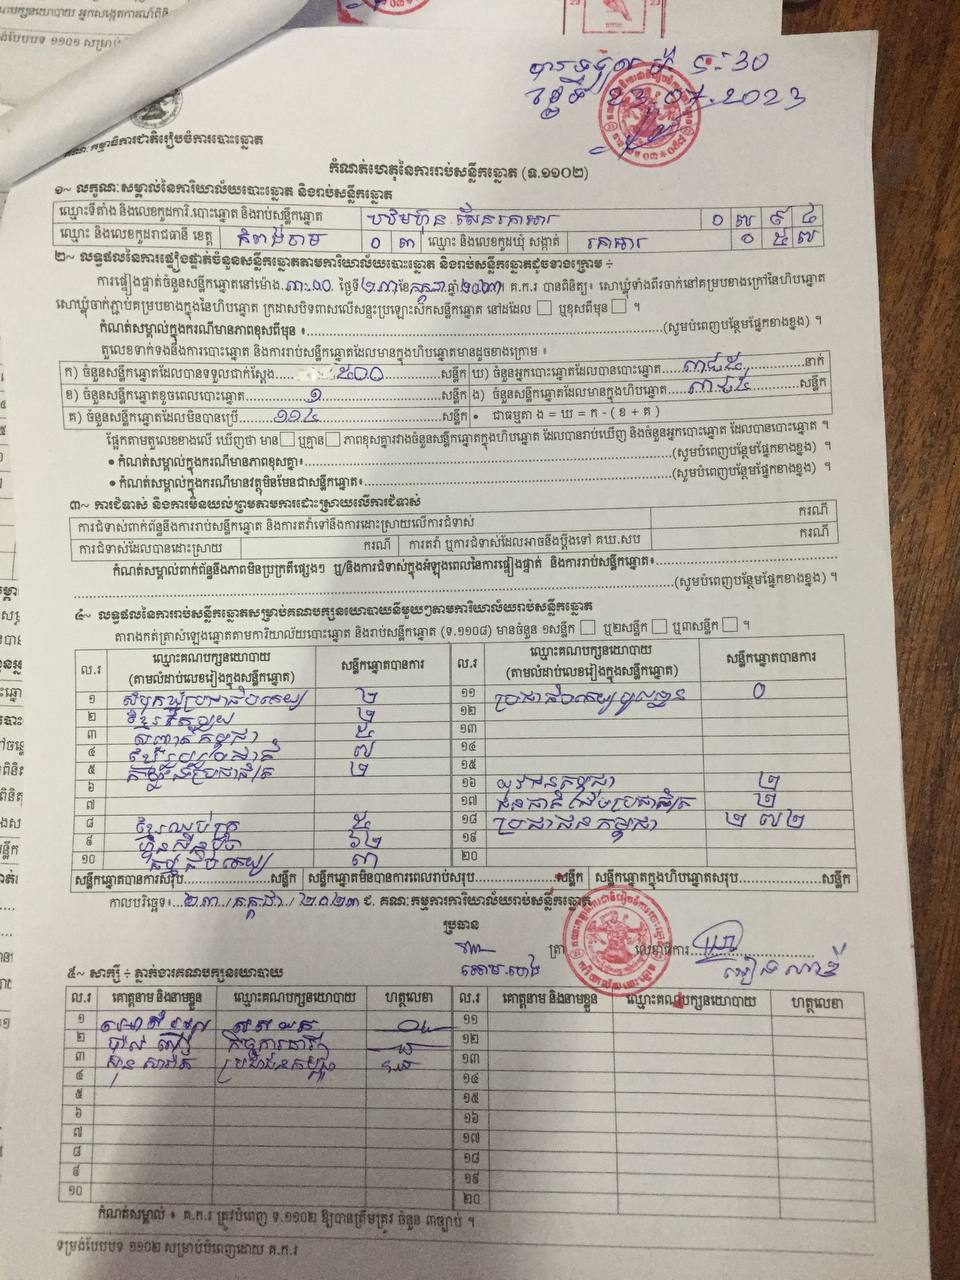 ទម្រង់បែបបទ ១១០១ សម្រាប់
23.07.2023
គណៈកម្មាធិការជាតិរៀបចំការបោះឆ្នោត
កំណត់ហេតុនៃការរាប់សន្លឹកឆ្នោត (ទ.១១០២)
១~ លក្ខណៈសម្គាល់នៃការិយាល័យបោះឆ្នោត និងរាប់សន្លឹកឆ្នោត
ឈ្មោះទីតាំង និងលេខកូដការិ.បោះឆ្នោត និងរាប់សន្លឹកឆ្នោត
ឈ្មោះ និងលេខកូដរាជធានី ខេត្ត កំពង់ចាម ០ ៣ ឈ្មោះ និងលេខកូដឃុំ សង្កាត់ ០ ៥ ៧
២~ លទ្ធផលនៃការផ្ទៀងផ្ទាត់ចំនួនសន្លឹកឆ្នោតតាមការិយាល័យបោះឆ្នោត និងរាប់សន្លឹកឆ្នោតដូចខាងក្រោម ÷
ការផ្ទៀងផ្ទាត់ចំនួនសន្លឹកឆ្នោតនៅម៉ោង ៣:០០ ថ្ងៃទី ២៣ ខែ កក្កដា ឆ្នាំ ២០២៣ គ.ក.រ បានពិនិត្យ៖ សោឃ្លុំទាំងពីរចាក់នៅគម្របខាងក្រៅនៃហិបឆ្នោត
សោឃ្លុំចាក់ភ្ជាប់គម្របខាងក្នុងនៃហិបឆ្នោត ក្រដាសបិទពាសលើសន្ទះប្រឡោះស៊កសន្លឹកឆ្នោត នៅដដែល □ ឬខុសពីមុន □ ។
កំណត់សម្គាល់ក្នុងករណីមានភាពខុសពីមុន ៖ (សូមបំពេញបន្ថែមផ្នែកខាងខ្នង) ។
តួលេខទាក់ទងនឹងការបោះឆ្នោត និងការរាប់សន្លឹកឆ្នោតដែលមានក្នុងហិបឆ្នោតមានដូចខាងក្រោម ៖
ក) ចំនួនសន្លឹកឆ្នោតដែលបានទទួលជាក់ស្តែង ៥០០ សន្លឹក ឃ) ចំនួនអ្នកបោះឆ្នោតដែលបានបោះឆ្នោត ៣៨៥ នាក់
ខ) ចំនួនសន្លឹកឆ្នោតខូចពេលបោះឆ្នោត ១ សន្លឹក ង) ចំនួនសន្លឹកឆ្នោតដែលមានក្នុងហិបឆ្នោត ៣៨៥ សន្លឹក
គ) ចំនួនសន្លឹកឆ្នោតដែលមិនបានប្រើ ១១៤ សន្លឹក • ជាធម្មតា ង = ឃ = ក - ( ខ + គ )
ផ្អែកតាមតួលេខខាងលើ ឃើញថា មាន □ ឬគ្មាន □ ភាពខុសគ្នារវាងចំនួនសន្លឹកឆ្នោតក្នុងហិបឆ្នោត ដែលបានរាប់ឃើញ និងចំនួនអ្នកបោះឆ្នោត ដែលបានបោះឆ្នោត ។
• កំណត់សម្គាល់ក្នុងករណីមានភាពខុសគ្នា៖ (សូមបំពេញបន្ថែមផ្នែកខាងខ្នង) ។
• កំណត់សម្គាល់ក្នុងករណីមានវត្ថុមិនមែនជាសន្លឹកឆ្នោត៖ (សូមបំពេញបន្ថែមផ្នែកខាងខ្នង) ។
៣~ ការជំទាស់ និងការមិនយល់ព្រមតាមការដោះស្រាយលើការជំទាស់
ការជំទាស់ពាក់ព័ន្ធនឹងការរាប់សន្លឹកឆ្នោត និងការតវ៉ាទៅនឹងការដោះស្រាយលើការជំទាស់ ករណី
ការជំទាស់ដែលបានដោះស្រាយ ករណី ការតវ៉ា ឬការជំទាស់ដែលអាចនឹងប្តឹងទៅ គឃ.សប ករណី
កំណត់សម្គាល់ពាក់ព័ន្ធនឹងភាពមិនប្រក្រតីផ្សេងៗ ឬ/និងការជំទាស់ក្នុងអំឡុងពេលនៃការផ្ទៀងផ្ទាត់ និងការរាប់សន្លឹកឆ្នោត៖
(សូមបំពេញបន្ថែមផ្នែកខាងខ្នង) ។
៤~ លទ្ធផលនៃការរាប់សន្លឹកឆ្នោតសម្រាប់គណបក្សនយោបាយនីមួយៗតាមការិយាល័យរាប់សន្លឹកឆ្នោត
តារាងកត់ត្រាសំឡេងឆ្នោតតាមការិយាល័យបោះឆ្នោត និងរាប់សន្លឹកឆ្នោត (ទ.១១០៨) មានចំនួន ១សន្លឹក □ ឬ២សន្លឹក □ ឬ៣សន្លឹក □ ។
ល.រ ឈ្មោះគណបក្សនយោបាយ (តាមលំដាប់លេខរៀងក្នុងសន្លឹកឆ្នោត) សន្លឹកឆ្នោតបានការ ល.រ ឈ្មោះគណបក្សនយោបាយ (តាមលំដាប់លេខរៀងក្នុងសន្លឹកឆ្នោត) សន្លឹកឆ្នោតបានការ
១ សំបុកឃ្មុំប្រជាធិបតេយ្យ ២ ១១ ០
២ ២ ១២
៣ ៥ ១៣
៤ ៧ ១៤
៥ ២ ១៥
៦ ១៦ យុវជនកម្ពុជា ២
៧ ១៧ ២
៨ ៥ ១៨ ប្រជាជនកម្ពុជា ២៧២
៩ ហ្វ៊ុនស៊ិនប៉ិច ៦២ ១៩
១០ ៣ ២០
សន្លឹកឆ្នោតបានការសរុប សន្លឹក សន្លឹកឆ្នោតមិនបានការពេលរាប់សរុប សន្លឹក សន្លឹកឆ្នោតក្នុងហិបឆ្នោតសរុប សន្លឹក
កាលបរិច្ឆេទ៖ ២៣ / កក្កដា / ២០២៣ ជ. គណៈកម្មការការិយាល័យរាប់សន្លឹកឆ្នោត
ប្រធាន
ត្រា លេខាធិការ
៥~ សាក្សី ÷ ភ្នាក់ងារគណបក្សនយោបាយ
ល.រ គោត្តនាម និងនាមខ្លួន ឈ្មោះគណបក្សនយោបាយ ហត្ថលេខា ល.រ គោត្តនាម និងនាមខ្លួន ឈ្មោះគណបក្សនយោបាយ ហត្ថលេខា
១ ១១
២ ១២
៣ ប្រជាជនកម្ពុជា ១៣
៤ ១៤
៥ ១៥
៦ ១៦
៧ ១៧
៨ ១៨
៩ ១៩
១០ ២០
កំណត់សម្គាល់ ៖ គ.ក.រ ត្រូវបំពេញ ទ.១១០២ ឱ្យបានត្រឹមត្រូវ ចំនួន ៣ច្បាប់ ។
ទម្រង់បែបបទ ១១០២ សម្រាប់បំពេញដោយ គ.ក.រ